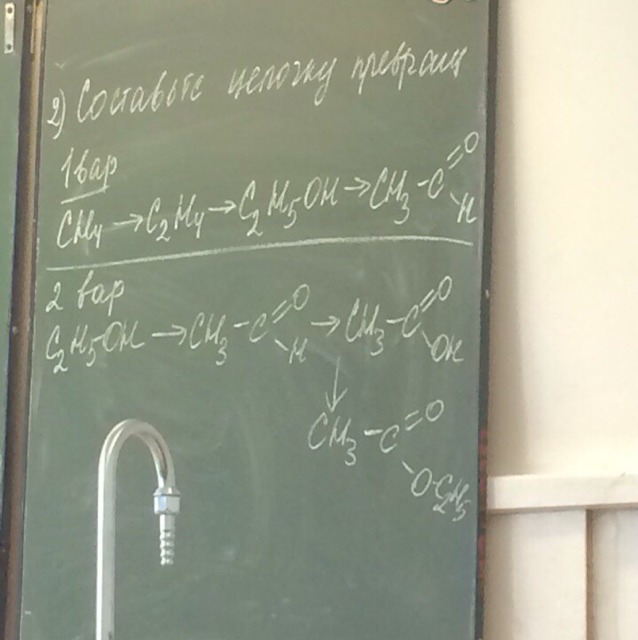 2) Составьте цепочку превращ
1 вар
CH₄ → C₂H₄ → C₂H₅OH → CH₃-C=O
H
2 вар
C₂H₅OH → CH₃-C=O → CH₃-C=O
H OH
↓
CH₃-C=O
O-C₂H₅